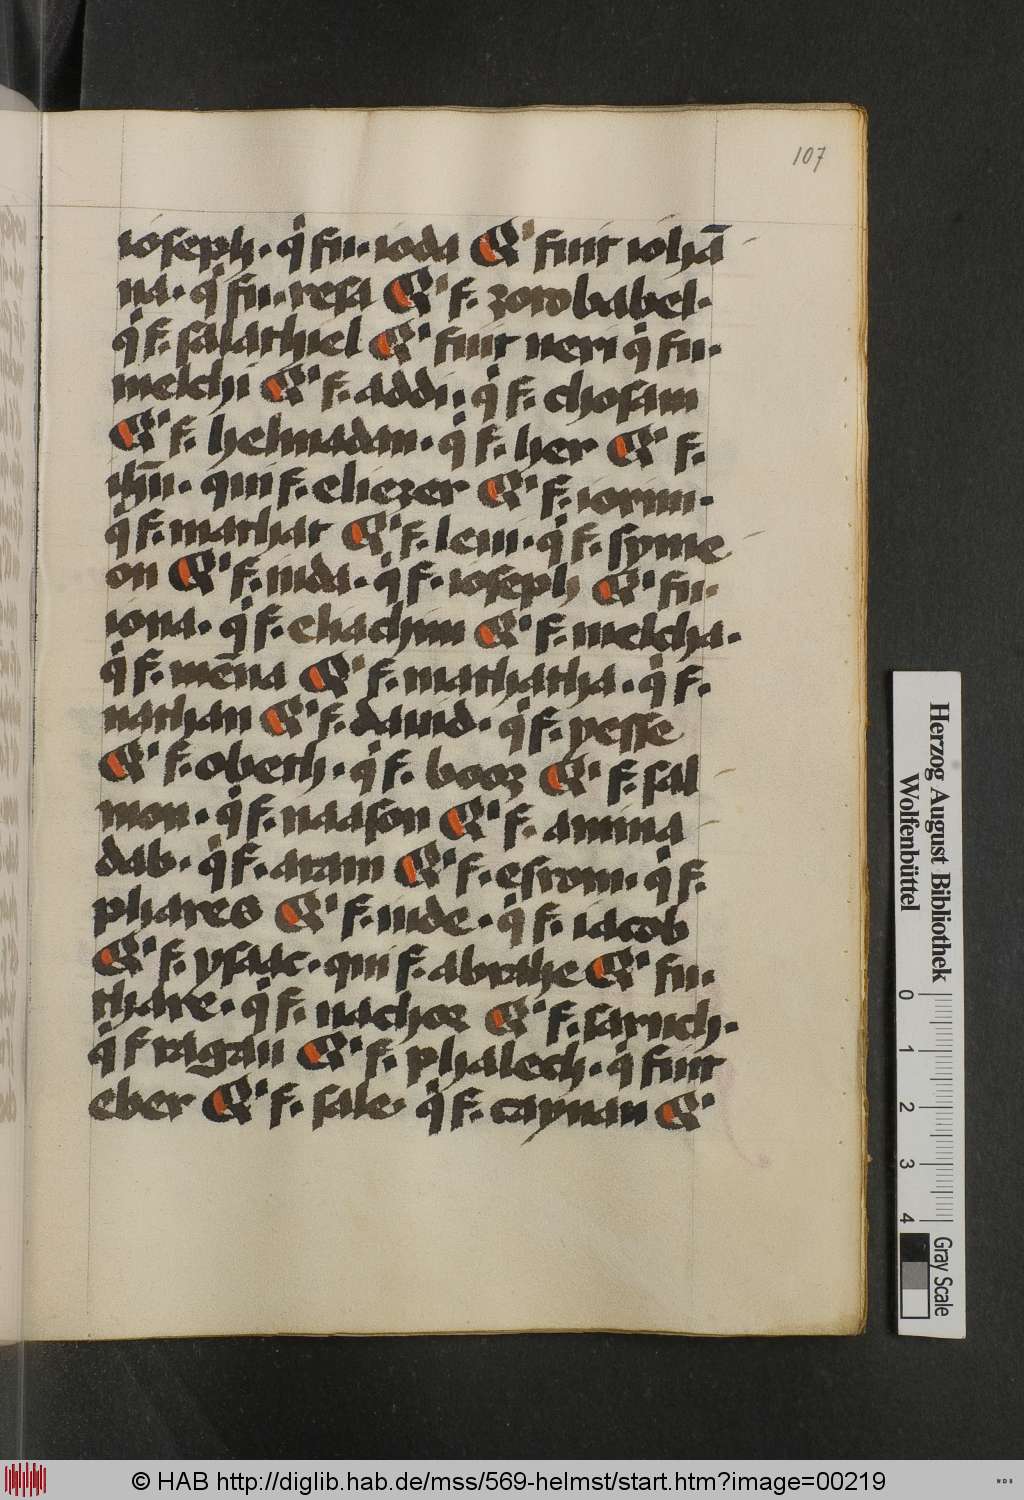 107
ioseph · qͥ fu · ioda Qͥ fuit iohā
na · qͥ fu · resa Qͥ f. zorobabel ·
qͥ f. salathiel Qͥ fuit neri qͥ fu ·
melchi Qͥ f. addi · qͥ f. chosam
Qͥ f. helmadan · qͥ f. her Qͥ f.
ihū · qui f. eliezer Qͥ f. iorim ·
qͥ f. mathat Qͥ f. leui · qͥ f. syme
on Qͥ f. iuda · qͥ f. ioseph Qͥ fu ·
iona · qͥ f. eliachim Qͥ f. melcha ·
qͥ f. mēna Qͥ f. mathatha · qͥ f.
nathan Qͥ f. dauid · qͥ f. yesse
Qͥ f. obeth · qͥ f. booz Qͥ f. sal
mon · qͥ f. naason Qͥ f. amina
dab · qͥ f. aram Qͥ f. esrom · qͥ f.
phares Qͥ f. iude · qͥ f. iacob
Qͥ f. ysaac · qui f. abrahe Qͥ fu ·
thare · qͥ f. nachor Qͥ f. saruch ·
qͥ f ragau Qͥ f. phalech · qͥ fuit
eber Qͥ f. sale · qͥ f. caynan Qͥ
Herzog August Bibliothek
Wolfenbüttel
0 1 2 3 4
Gray Scale
© HAB http://diglib.hab.de/mss/569-helmst/start.htm?image=00219